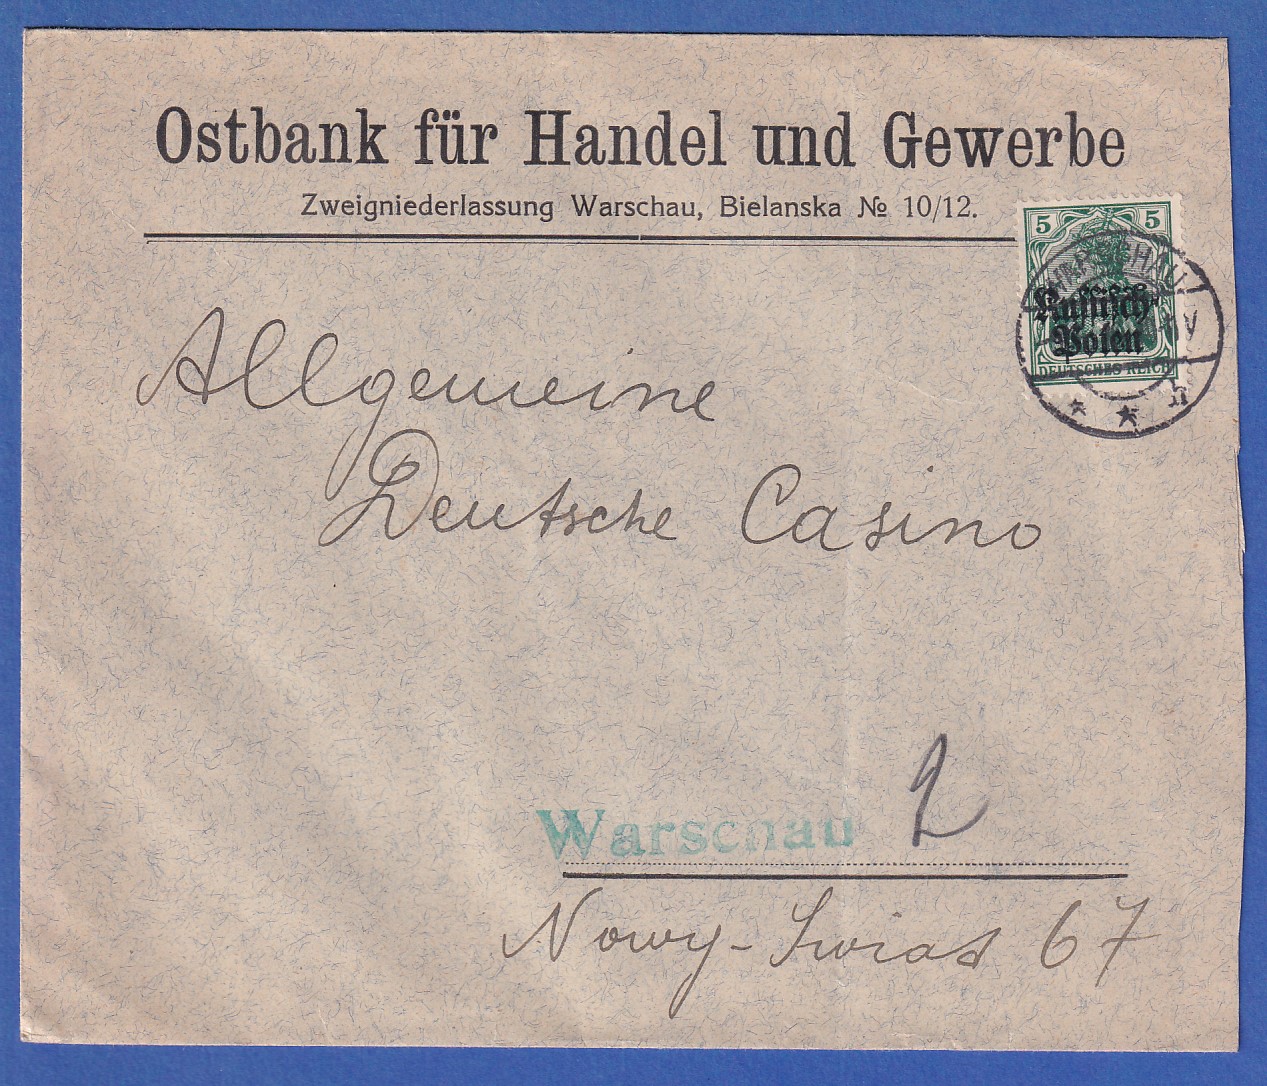 Ostbank für Handel und Gewerbe
Zweigniederlassung Warschau, Bielanska № 10/12.
5 5
Russisch-
Polen
DEUTSCHES REICH
WARSCHAU
Allgemeine
Deutsche Casino
2
Warschau
Nowy-Swiat 67